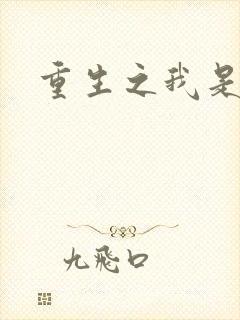 重生之我是
九飛口